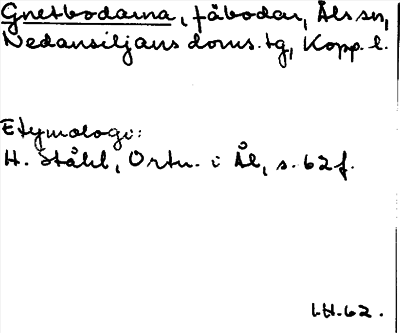 Gnetbodarna, fäbodar, Åls sn,
Nedansiljans doms.tg, Kopp. l.
Etymologi:
H. Ståhl, Ortn. i Ål, s. 62 f.
I.H.62.